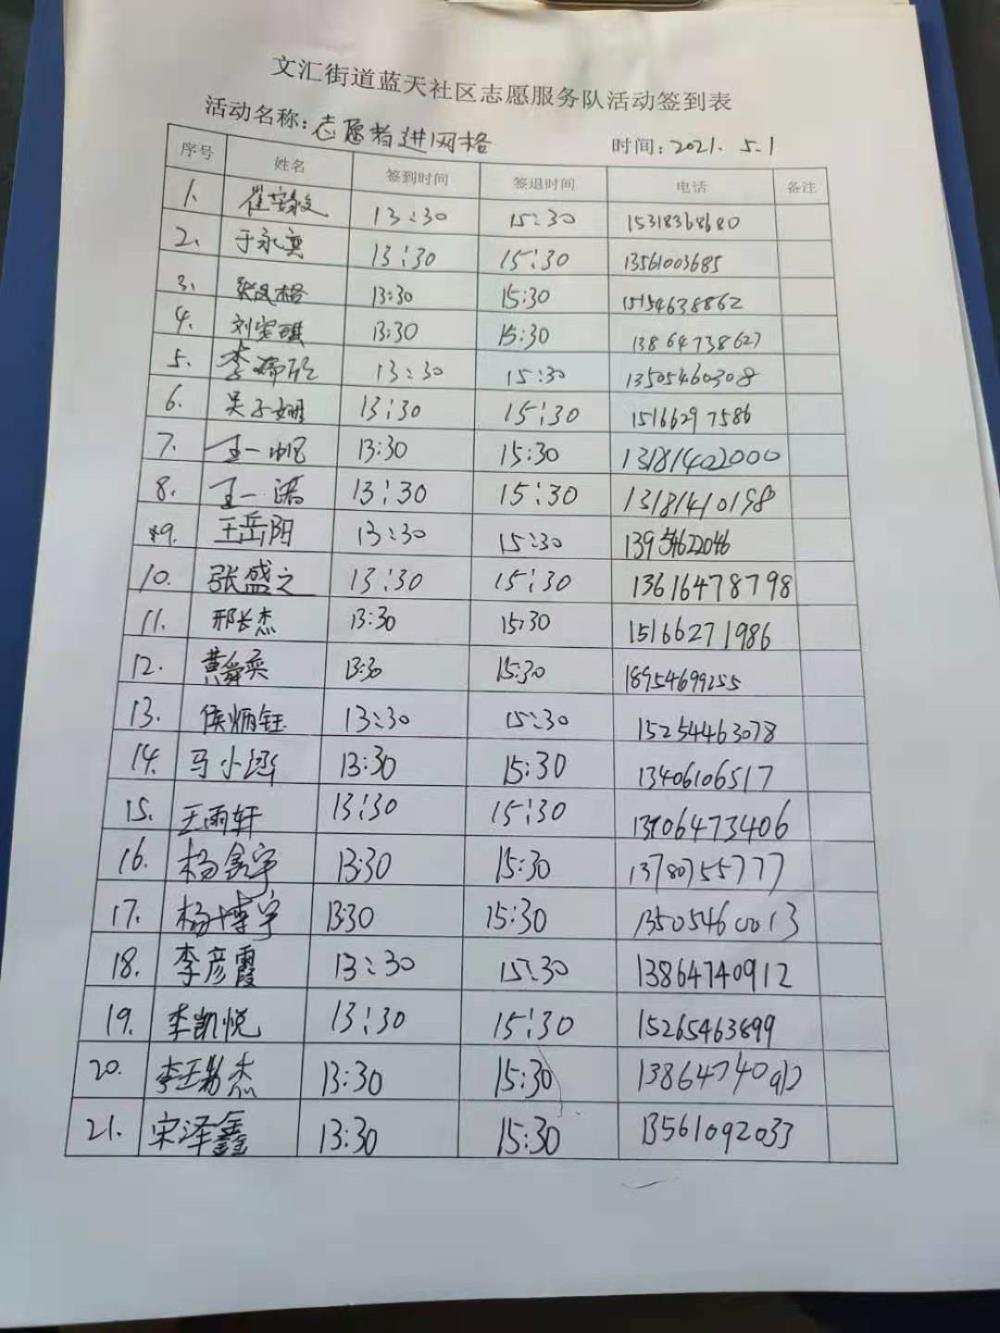 文汇街道蓝天社区志愿服务队活动签到表
活动名称：志愿者进网格 时间：2021. 5.1
序号 姓名 签到时间 签退时间 电话 备注
1. 13:30 15:30 15318368680
2. 于永真 13:30 15:30 13561003685
3. 13:30 15:30 15154638862
4. 刘宝琪 13:30 15:30 13864738627
5. 13:30 15:30 13505460308
6. 吴子妍 13:30 15:30 15166297586
7. 王一帆 13:30 15:30 13181402000
8. 王一涵 13:30 15:30 13181410198
9. 王岳阳 13:30 15:30
10. 张盛之 13:30 15:30 13616478798
11. 邢长杰 13:30 15:30 15166271986
12. 黄舜奕 13:30 15:30 18954699255
13. 侯炳钰 13:30 15:30 15254463078
14. 马小涵 13:30 15:30 13406106517
15. 王雨轩 13:30 15:30 13906473406
16. 杨鑫宇 13:30 15:30 13780755777
17. 杨博宇 13:30 15:30 13505460013
18. 李彦霞 13:30 15:30 13864740912
19. 李凯悦 13:30 15:30 15265463899
20. 13:30 15:30 13864740912
21. 宋泽鑫 13:30 15:30 13561092033